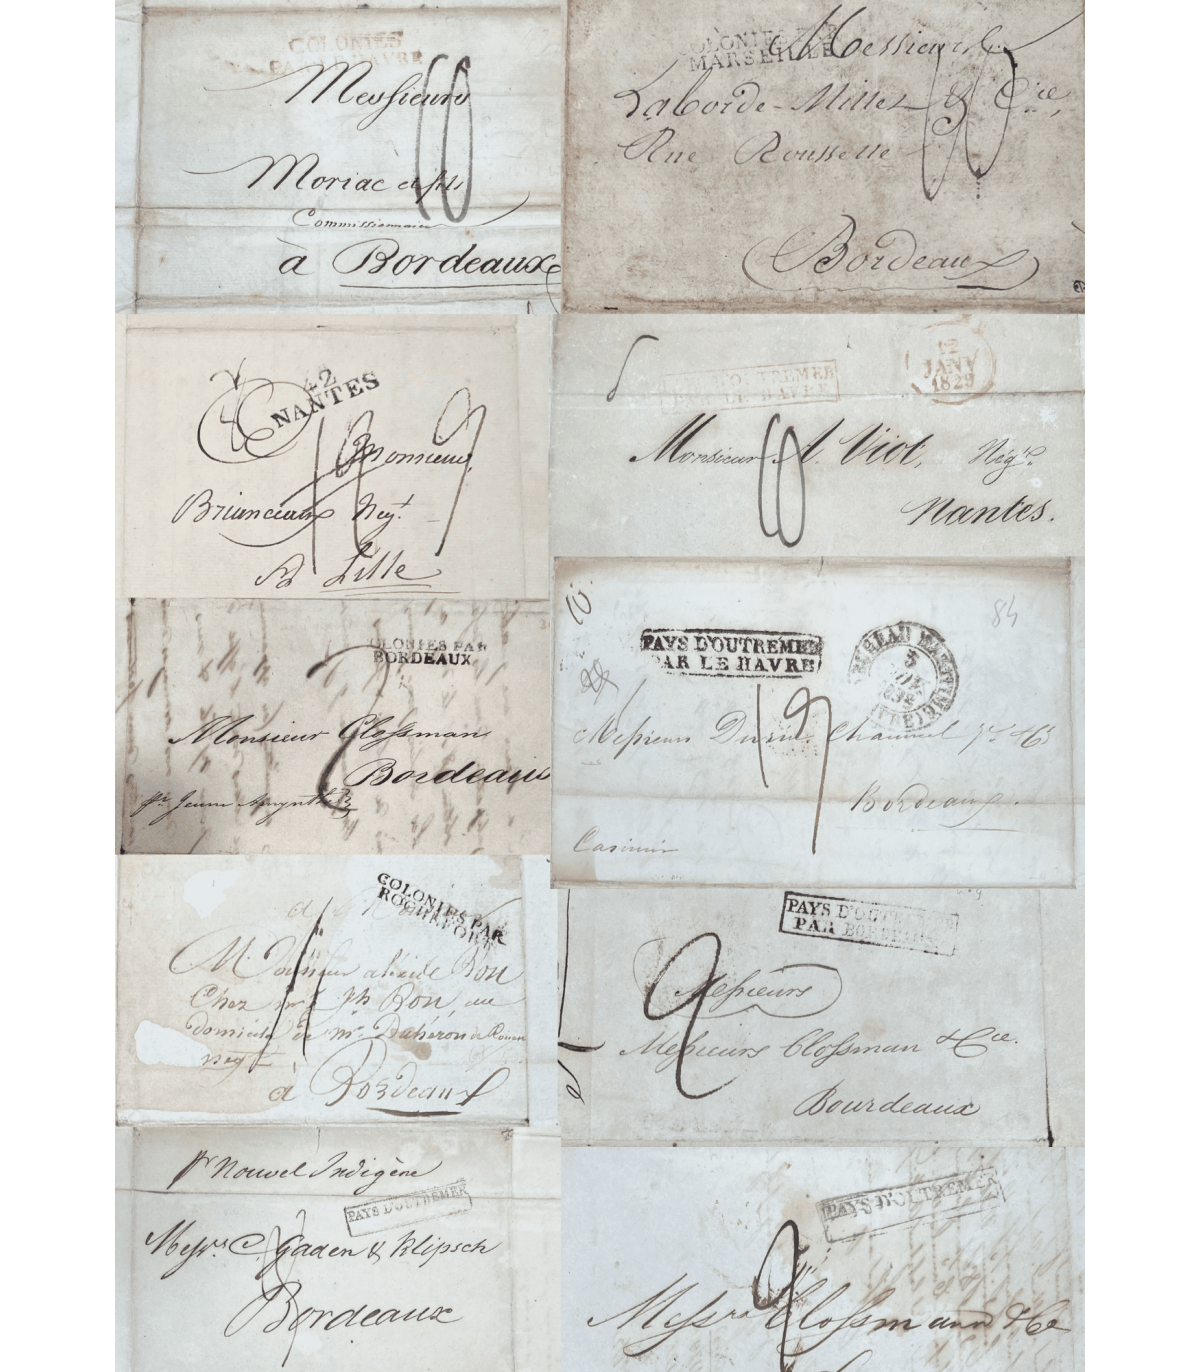 COLONIES
PAR LE HAVRE
Messieurs
18
Moriac et fils
Commissionnaires
à Bordeaux
COLONIES PAR
MARSEILLE
Messieurs
Laborde-Millez & Cie,
Rue Rousselle
Bordeaux
42
NANTES
Monsieur
Briansiaux Negt.
A Lille
PAYS D'OUTREMER
PAR LE HAVRE
12
JANV
1829
Monsieur A. Viot, Negt.
Nantes.
COLONIES PAR
BORDEAUX
Monsieur Clossman
Bordeaux
84
PAYS D'OUTREMER
PAR LE HAVRE
BUREAU MARITIME
5
19
Messieurs
Bordeaux.
Casimir
COLONIES PAR
ROCHEFORT
M. Monsieur Bon
Chez Bon, au
domicile de mr.
negt
à Bordeaux
PAYS D'OUTREMER
PAR BORDEAUX
2
Messieurs
Messieurs Clossman & Cie.
Bourdeaux
pr Nouvel Indigène
PAYS D'OUTREMER
Messrs. C. Gaden & Klipsch
Bordeaux
PAYS D'OUTREMER
2
Messrs Clossmann & Co